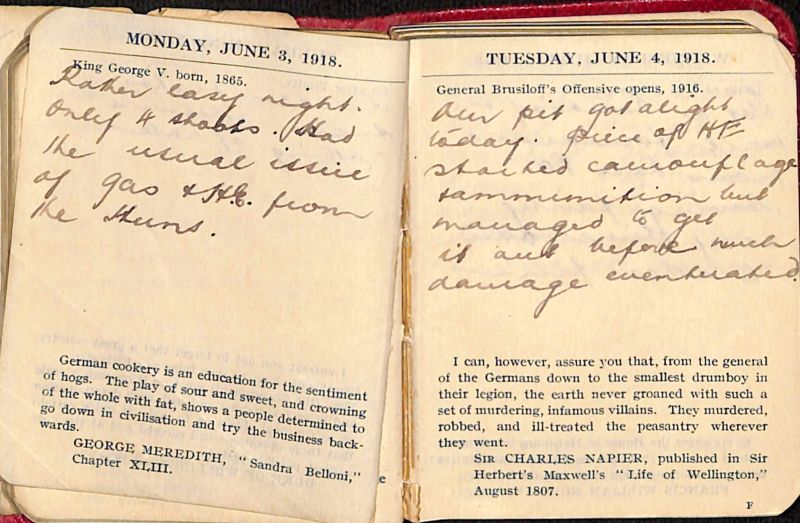 MONDAY, JUNE 3, 1918.
King George V. born, 1865.
Rather easy night.
Only 4 shoots. Had
the usual issue
of gas & H.E. from
the Huns.
German cookery is an education for the sentiment
of hogs. The play of sour and sweet, and crowning
of the whole with fat, shows a people determined to
go down in civilisation and try the business back-
wards.
GEORGE MEREDITH, "Sandra Belloni,"
Chapter XLIII.
TUESDAY, JUNE 4, 1918.
General Brusiloff's Offensive opens, 1916.
Our pit got alight
today. Piece of HE
started camouflage
& ammunition but
managed to get
it out before much
damage eventuated.
I can, however, assure you that, from the general
of the Germans down to the smallest drumboy in
their legion, the earth never groaned with such a
set of murdering, infamous villains. They murdered,
robbed, and ill-treated the peasantry wherever
they went.
SIR CHARLES NAPIER, published in Sir
Herbert's Maxwell's "Life of Wellington,"
August 1807.
F